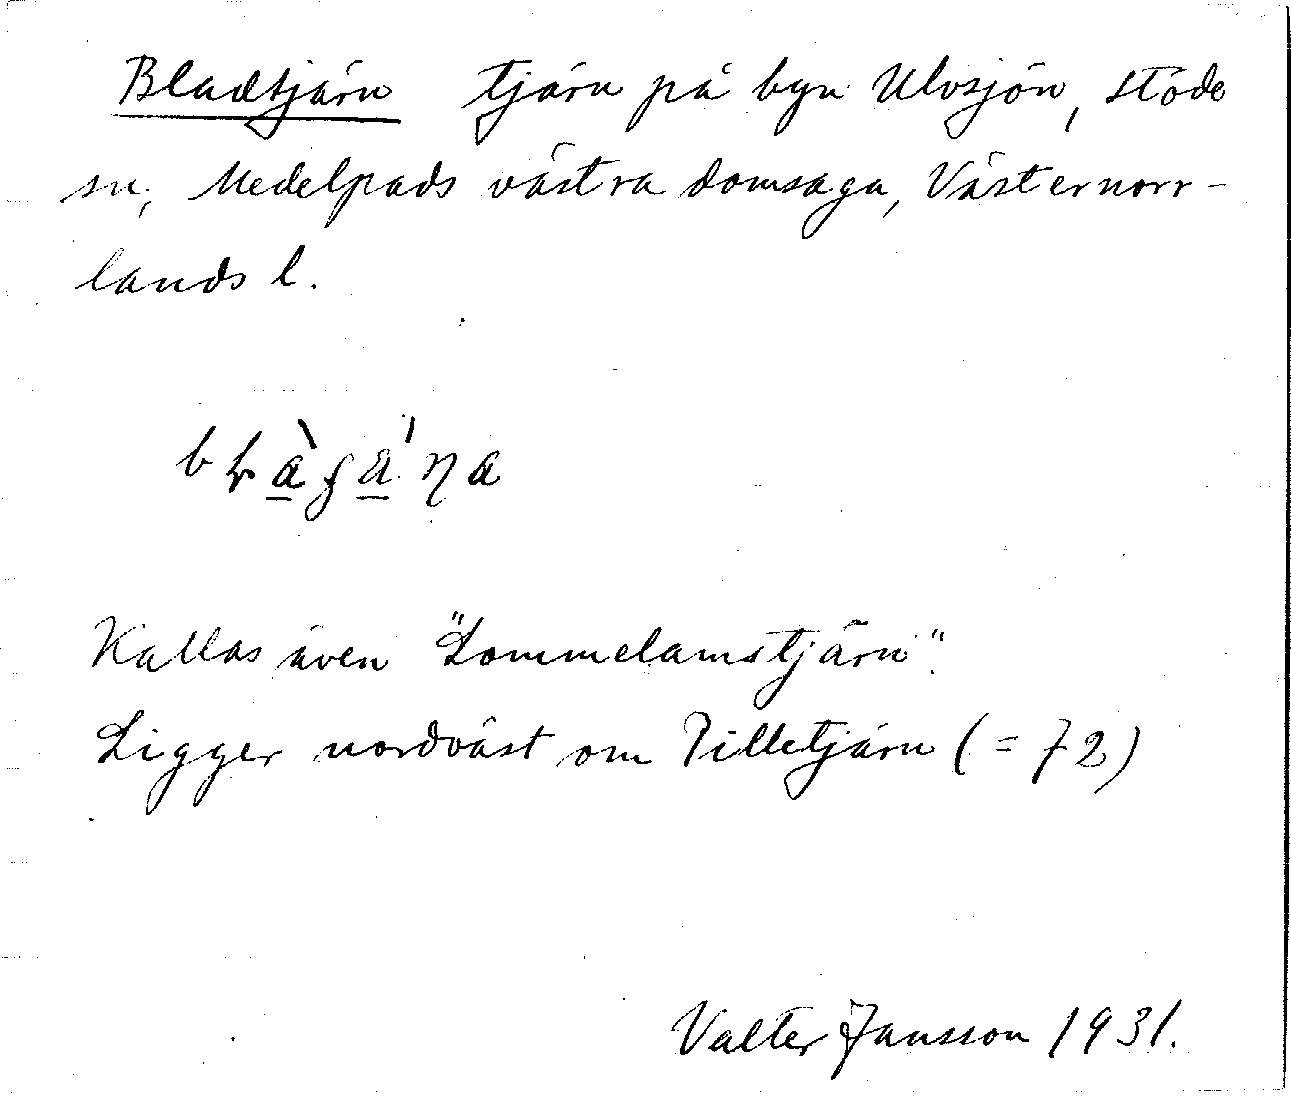 Bladtjärn tjärn på byn Ulvsjön, Stöde
sn, Medelpads västra domsaga, Västernorr-
lands l.
Kallas även "Lommelamstjärn".
Ligger nordväst om Pilletjärn (= 72)
Valter Jansson 1931.